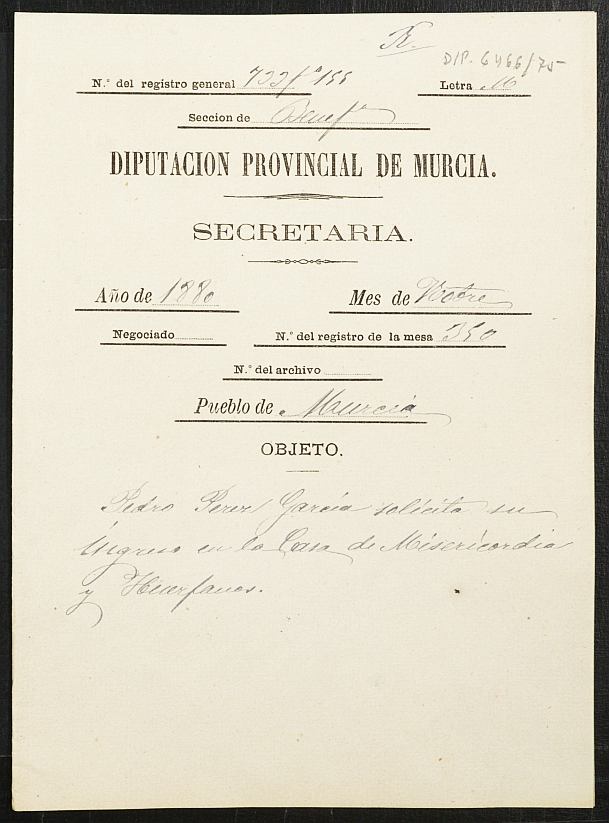 R.
DIP. 6466/75
N.° del registro general 733 f° 155
Letra M
Seccion de Benef.a
DIPUTACION PROVINCIAL DE MURCIA.
SECRETARIA.
Año de 1880
Mes de Nobre
Negociado
N.° del registro de la mesa 350
N.° del archivo
Pueblo de Murcia
OBJETO.
Pedro Perez García solicita su
ingreso en la Casa de Misericordia
y Huerfanos.